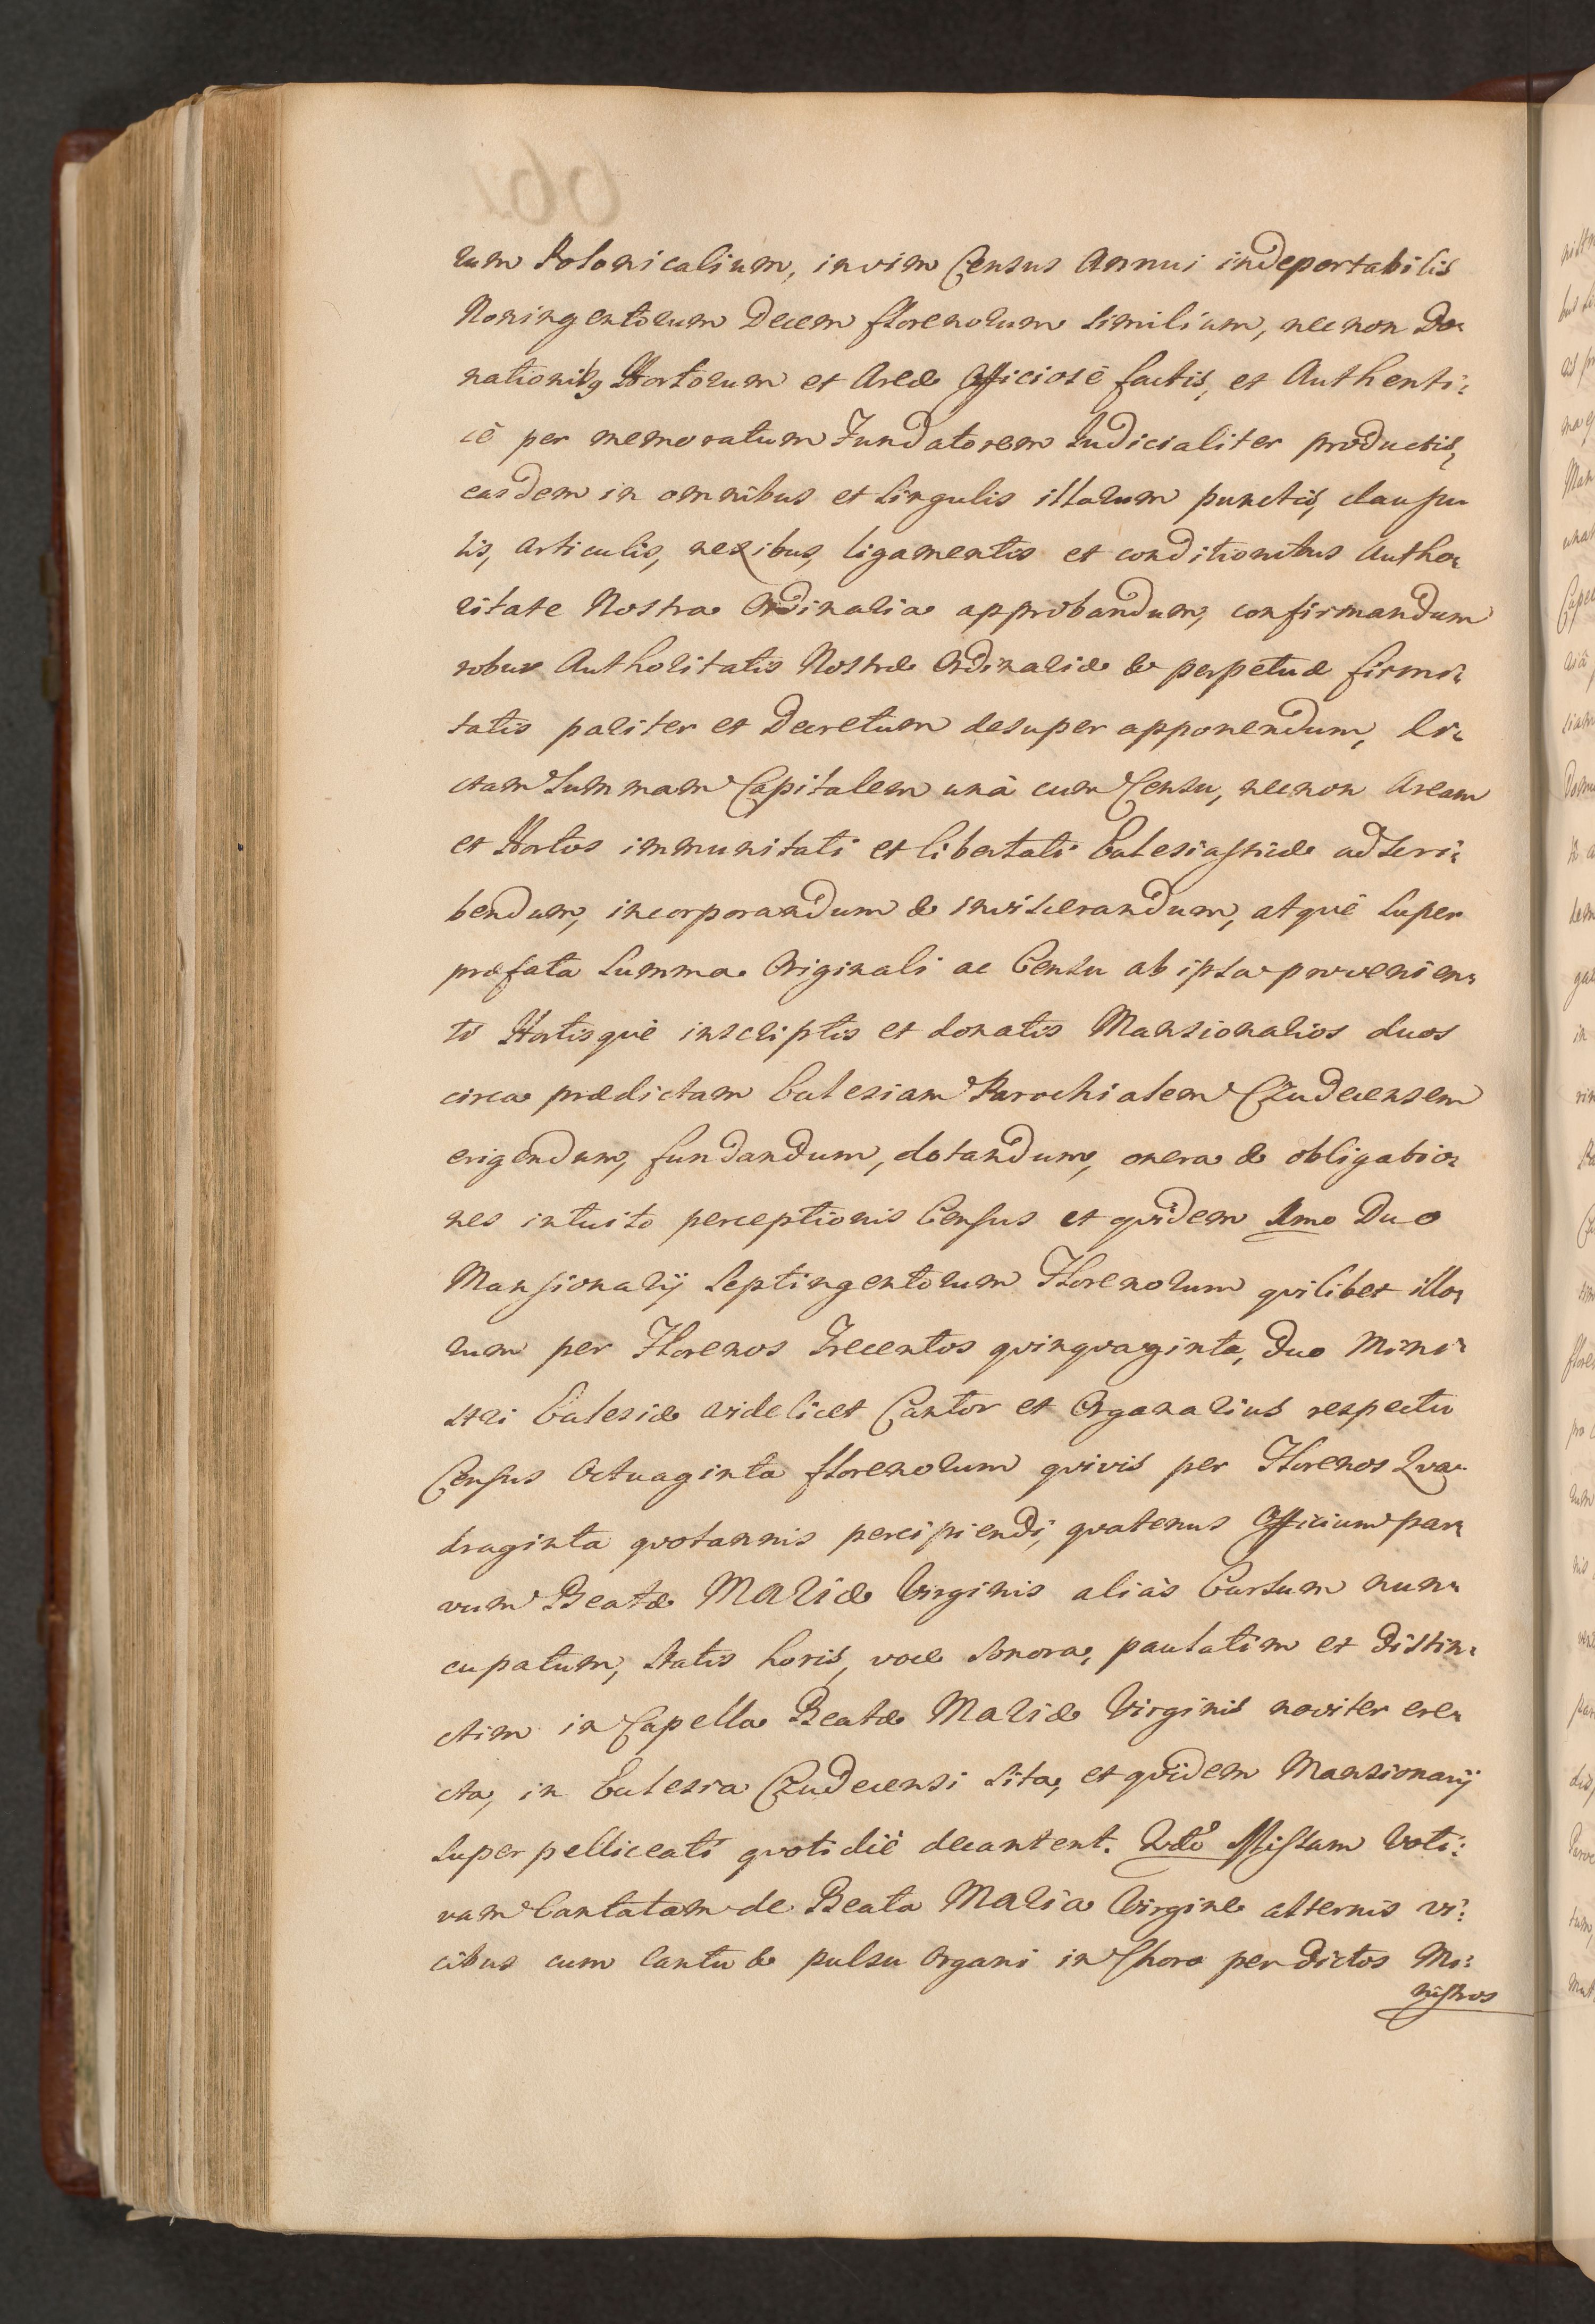 rum Polonicalium, in vim Census Annui indeportabilis
Noningentorum Decem florenorum similium, nec non Do-
nationibg Hortorum et Areæ Officiosè factis, et Authenti-
cè per memoratum Fundatorem Judicialiter productis,
easdem in omnibus et singulis illarum punctis, clausu-
lis, articulis, nexibus, ligamentis et conditionibus Autho-
ritate Nostra Ordinaria approbandum, confirmandum
robur Authoritatis Nostræ Ordinariæ & perpetuæ firmi-
tatis pariter et Decretum desuper apponendum, di-
ctam Summam Capitalem unà cum Censu, necnon Aream
et Hortos immunitati et libertati Ecclesiasticæ adscri-
bendum, incorporandum & inviscerandum, atquè super
præfata Summa Originali ac Censu ab ipsa provenien-
te Hortisquè inscriptis et donatis Mansionarios duos
circa prædictam Ecclesiam Parochialem Czudecensem
erigendum, fundandum, dotandum, onera & obligatio-
nes intuito perceptionis Census et quidem 1mo Duo
Mansionarij Septingentorum Florenorum quilibet illo-
rum per Florenos Trecentos quinquaginta, Duo Mini-
stri Ecclesiæ videlicet Cantor et Organarius respectu
Census Octuaginta florenorum quivis per Florenos Qua-
draginta quotannis percipiendi, quatenus Officium par-
vum Beatæ MARIÆ Virginis aliàs Cursum nun-
cupatum, statis horis, voce sonora, paulatim et distin-
ctim in Capella Beatæ Mariæ Virginis noviter ere-
cta, in Ecclesia Czudecensi sita, et quidem Mansionarij
superpelliceati quotidiè decantent. 2do Missam Voti-
vam Cantatam de Beata Maria Virgine alternis vi-
cibus cum Cantu & pulsu Organi in Choro per dictos Mi-
nistros